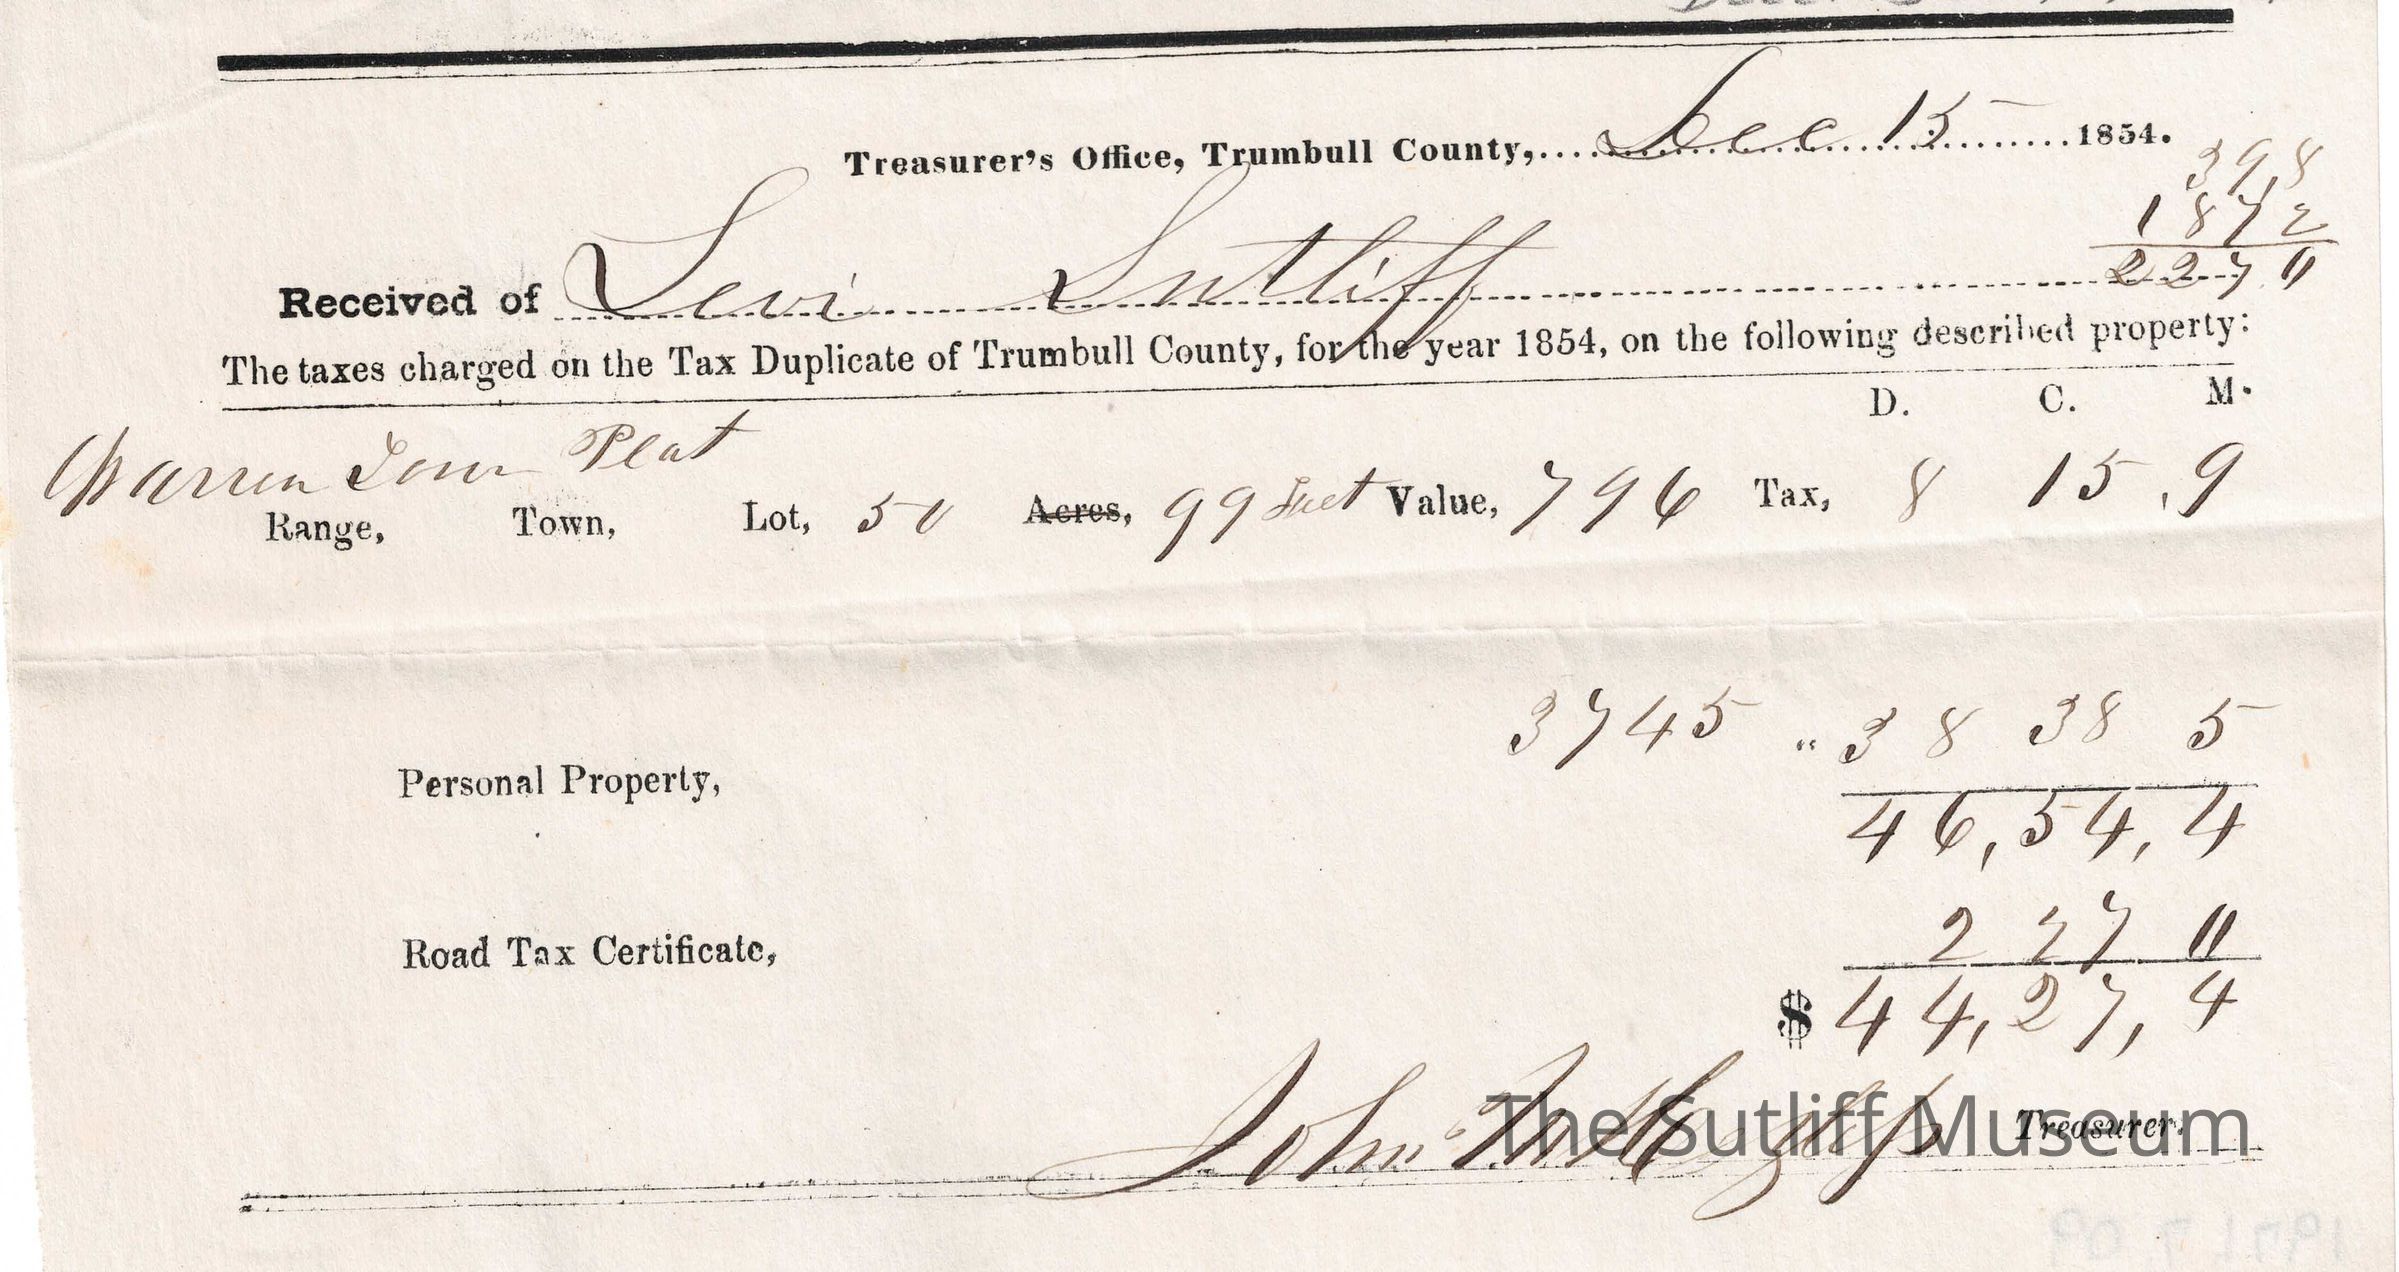 Treasurer's Office, Trumbull County,....Dec 15........1854.
39,8
1872
2270
Received of Levi Sutliff
The taxes charged on the Tax Duplicate of Trumbull County, for the year 1854, on the following described property:
D. C. M.
Warren Town Plat
Range, Town, Lot, 50 Acres, 99 feet Value, 796 Tax, 8 15,9
3745 " 38 38 5
Personal Property,
46,54,4
Road Tax Certificate, 2 27 0
$ 44,27,4
John Treasurer.
The Sutliff Museum